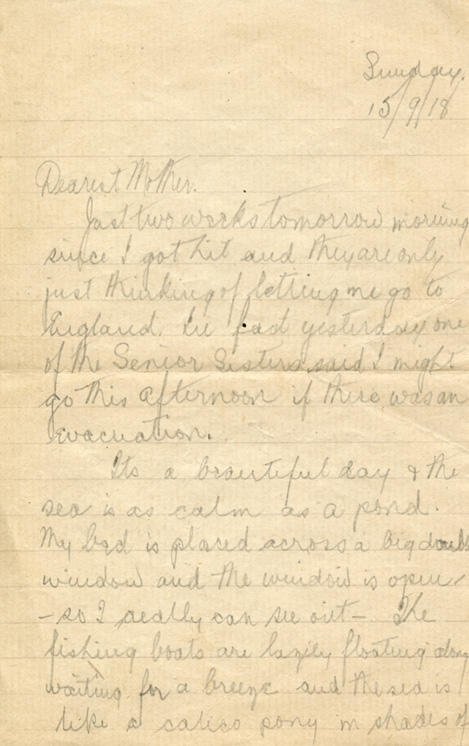 Sunday.
15/9/18
Dearest Mother.
Just two weeks tomorrow morning
since I got hit and they are only
just thinking of letting me go to
England. In fact yesterday one
of the Senior Sisters said I might
go this afternoon if there was an
evacuation.
Its a beautiful day & the
sea is as calm as a pond.
My bed is placed across a big double
window and the window is open
- so I really can see out - The
fishing boats are lazily floating along
waiting for a breeze and the sea is
like a calico pony in shades of